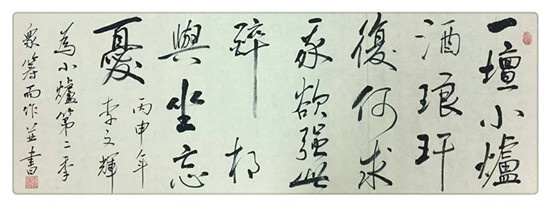 一壇小爐
酒琅玕
復何求
我欲强此
醉相
與坐忘
憂
丙申年
李文輝
為小爐第二季
眾筹而作並書